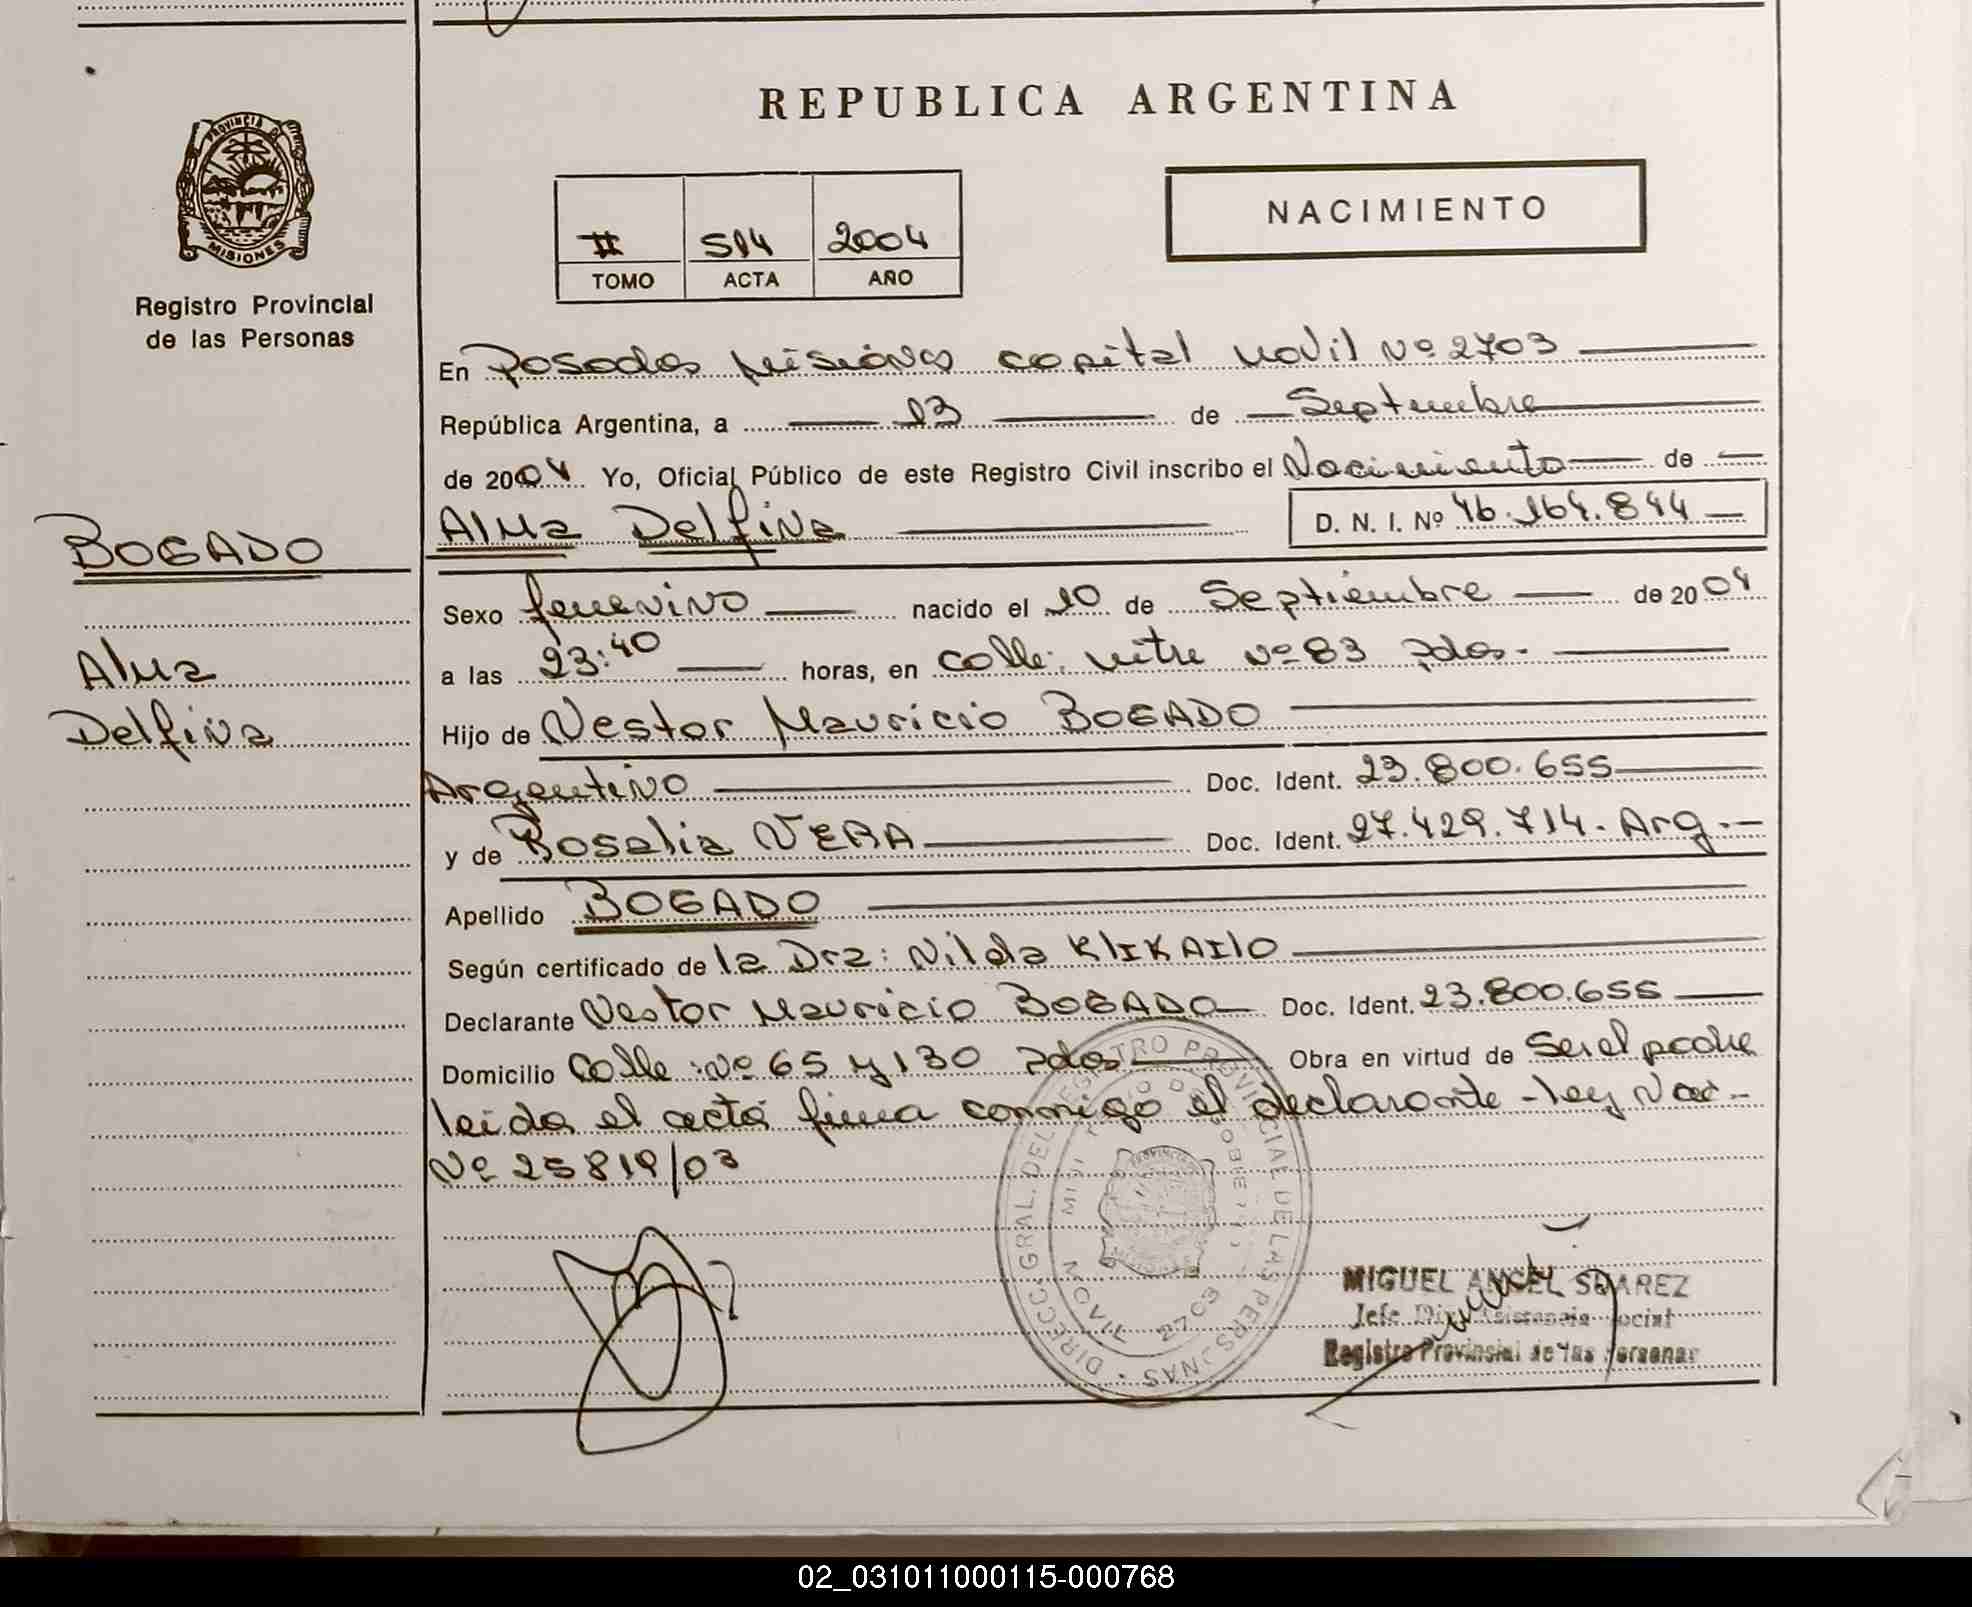 REPUBLICA ARGENTINA
PROVINCIA DE
MISIONES
Registro Provincial
de las Personas
II 514 2004
TOMO ACTA AÑO
NACIMIENTO
En Posadas Misiones capital Movil Nº 2703
República Argentina, a 13 de Septiembre
de 2004 Yo, Oficial Público de este Registro Civil inscribo el Nacimiento de
Alma Delfina D. N. I. Nº 46.164.844
BOGADO
Alma
Delfina
Sexo femenino nacido el 10 de Septiembre de 2004
a las 23:40 horas, en calle: mitre nº 83 pdas.
Hijo de Nestor Mauricio BOGADO
Argentino Doc. Ident. 23.800.655
y de Rosalia VERA Doc. Ident. 27.429.714. Arg.
Apellido BOGADO
Según certificado de la Dra: Nilda KlIKAIlO
Declarante Nestor Mauricio BOGADO Doc. Ident. 23.800.655
Domicilio Calle: Nº 65 y 130 pdas Obra en virtud de Ser el padre
leida el acta firma conmigo el declarante - ley Nac -
Nº 25819/03
DIRECC. GRAL. DEL REGISTRO PROVINCIAL DE LAS PERSONAS
MOVIL 2703
MIGUEL ANGEL SUAREZ
Jefe Asistencia Social
Registro Provincial de las Personas
02_031011000115-000768